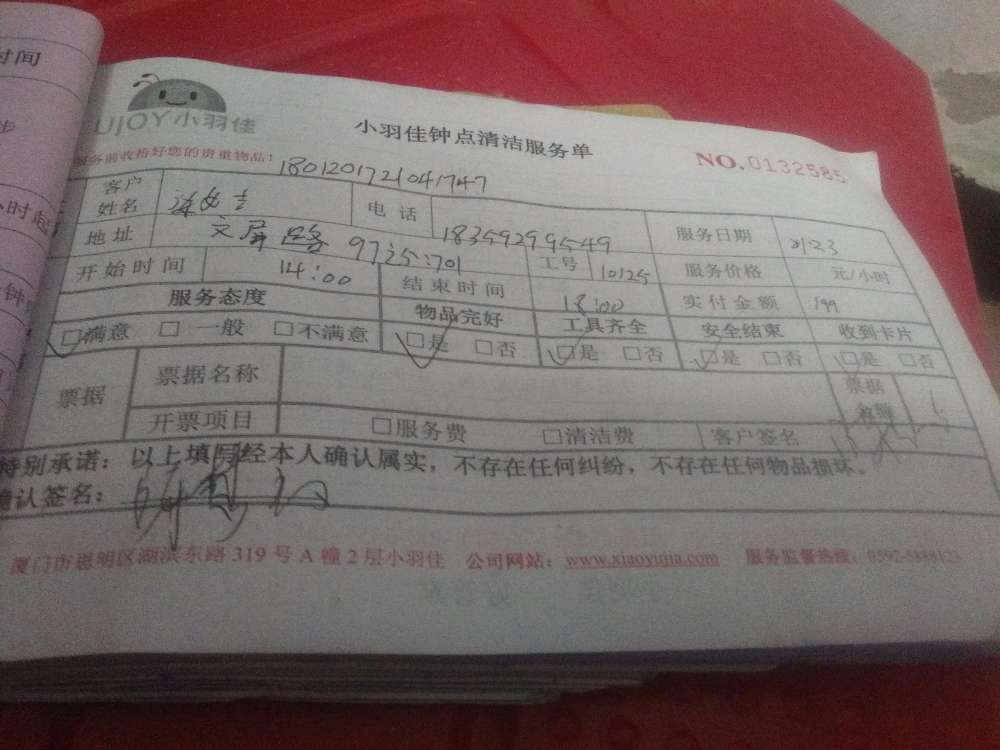 时间
步
小时起
UJOY小羽佳
小羽佳钟点清洁服务单
NO.0132585
服务前收拾好您的贵重物品！
180120172104174​7
客户姓名 电话 18359299549 服务日期
地址 文屏路 97 25:701 工号 10125 服务价格 元/小时
开始时间 14:00 结束时间 18:00 实付金额 199
服务态度 物品完好 工具齐全 安全结束 收到卡片
□满意 □一般 □不满意 □是 □否 □是 □否 □是 □否 □是 □否
票据 票据名称 票据
开票项目 □服务费 □清洁费 客户签名
特别承诺：以上填写经本人确认属实，不存在任何纠纷，不存在任何物品损坏。
确认签名：
厦门市思明区湖滨东路319号A幢2层小羽佳 公司网站：www.xiaoyujia.com 服务监督热线：0592-5888123